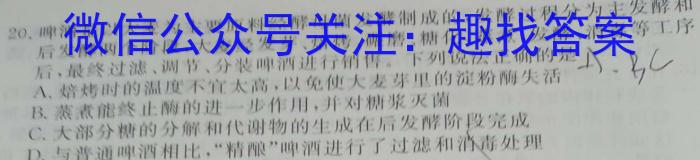 20. 啤酒
发酵制成的,发酵过程分为主发酵和
微信公众号关注：趣找答案
后，最终过滤、调节、分装啤酒进行销售。下列说法正确的是
A. 焙烤时的温度不宜太高，以免使大麦芽里的淀粉酶失活
B. 蒸煮能终止酶的进一步作用，并对糖浆灭菌
C. 大部分糖的分解和代谢物的生成在后发酵阶段完成
D. 与普通啤酒相比，“精酿”啤酒进行了过滤和消毒处理